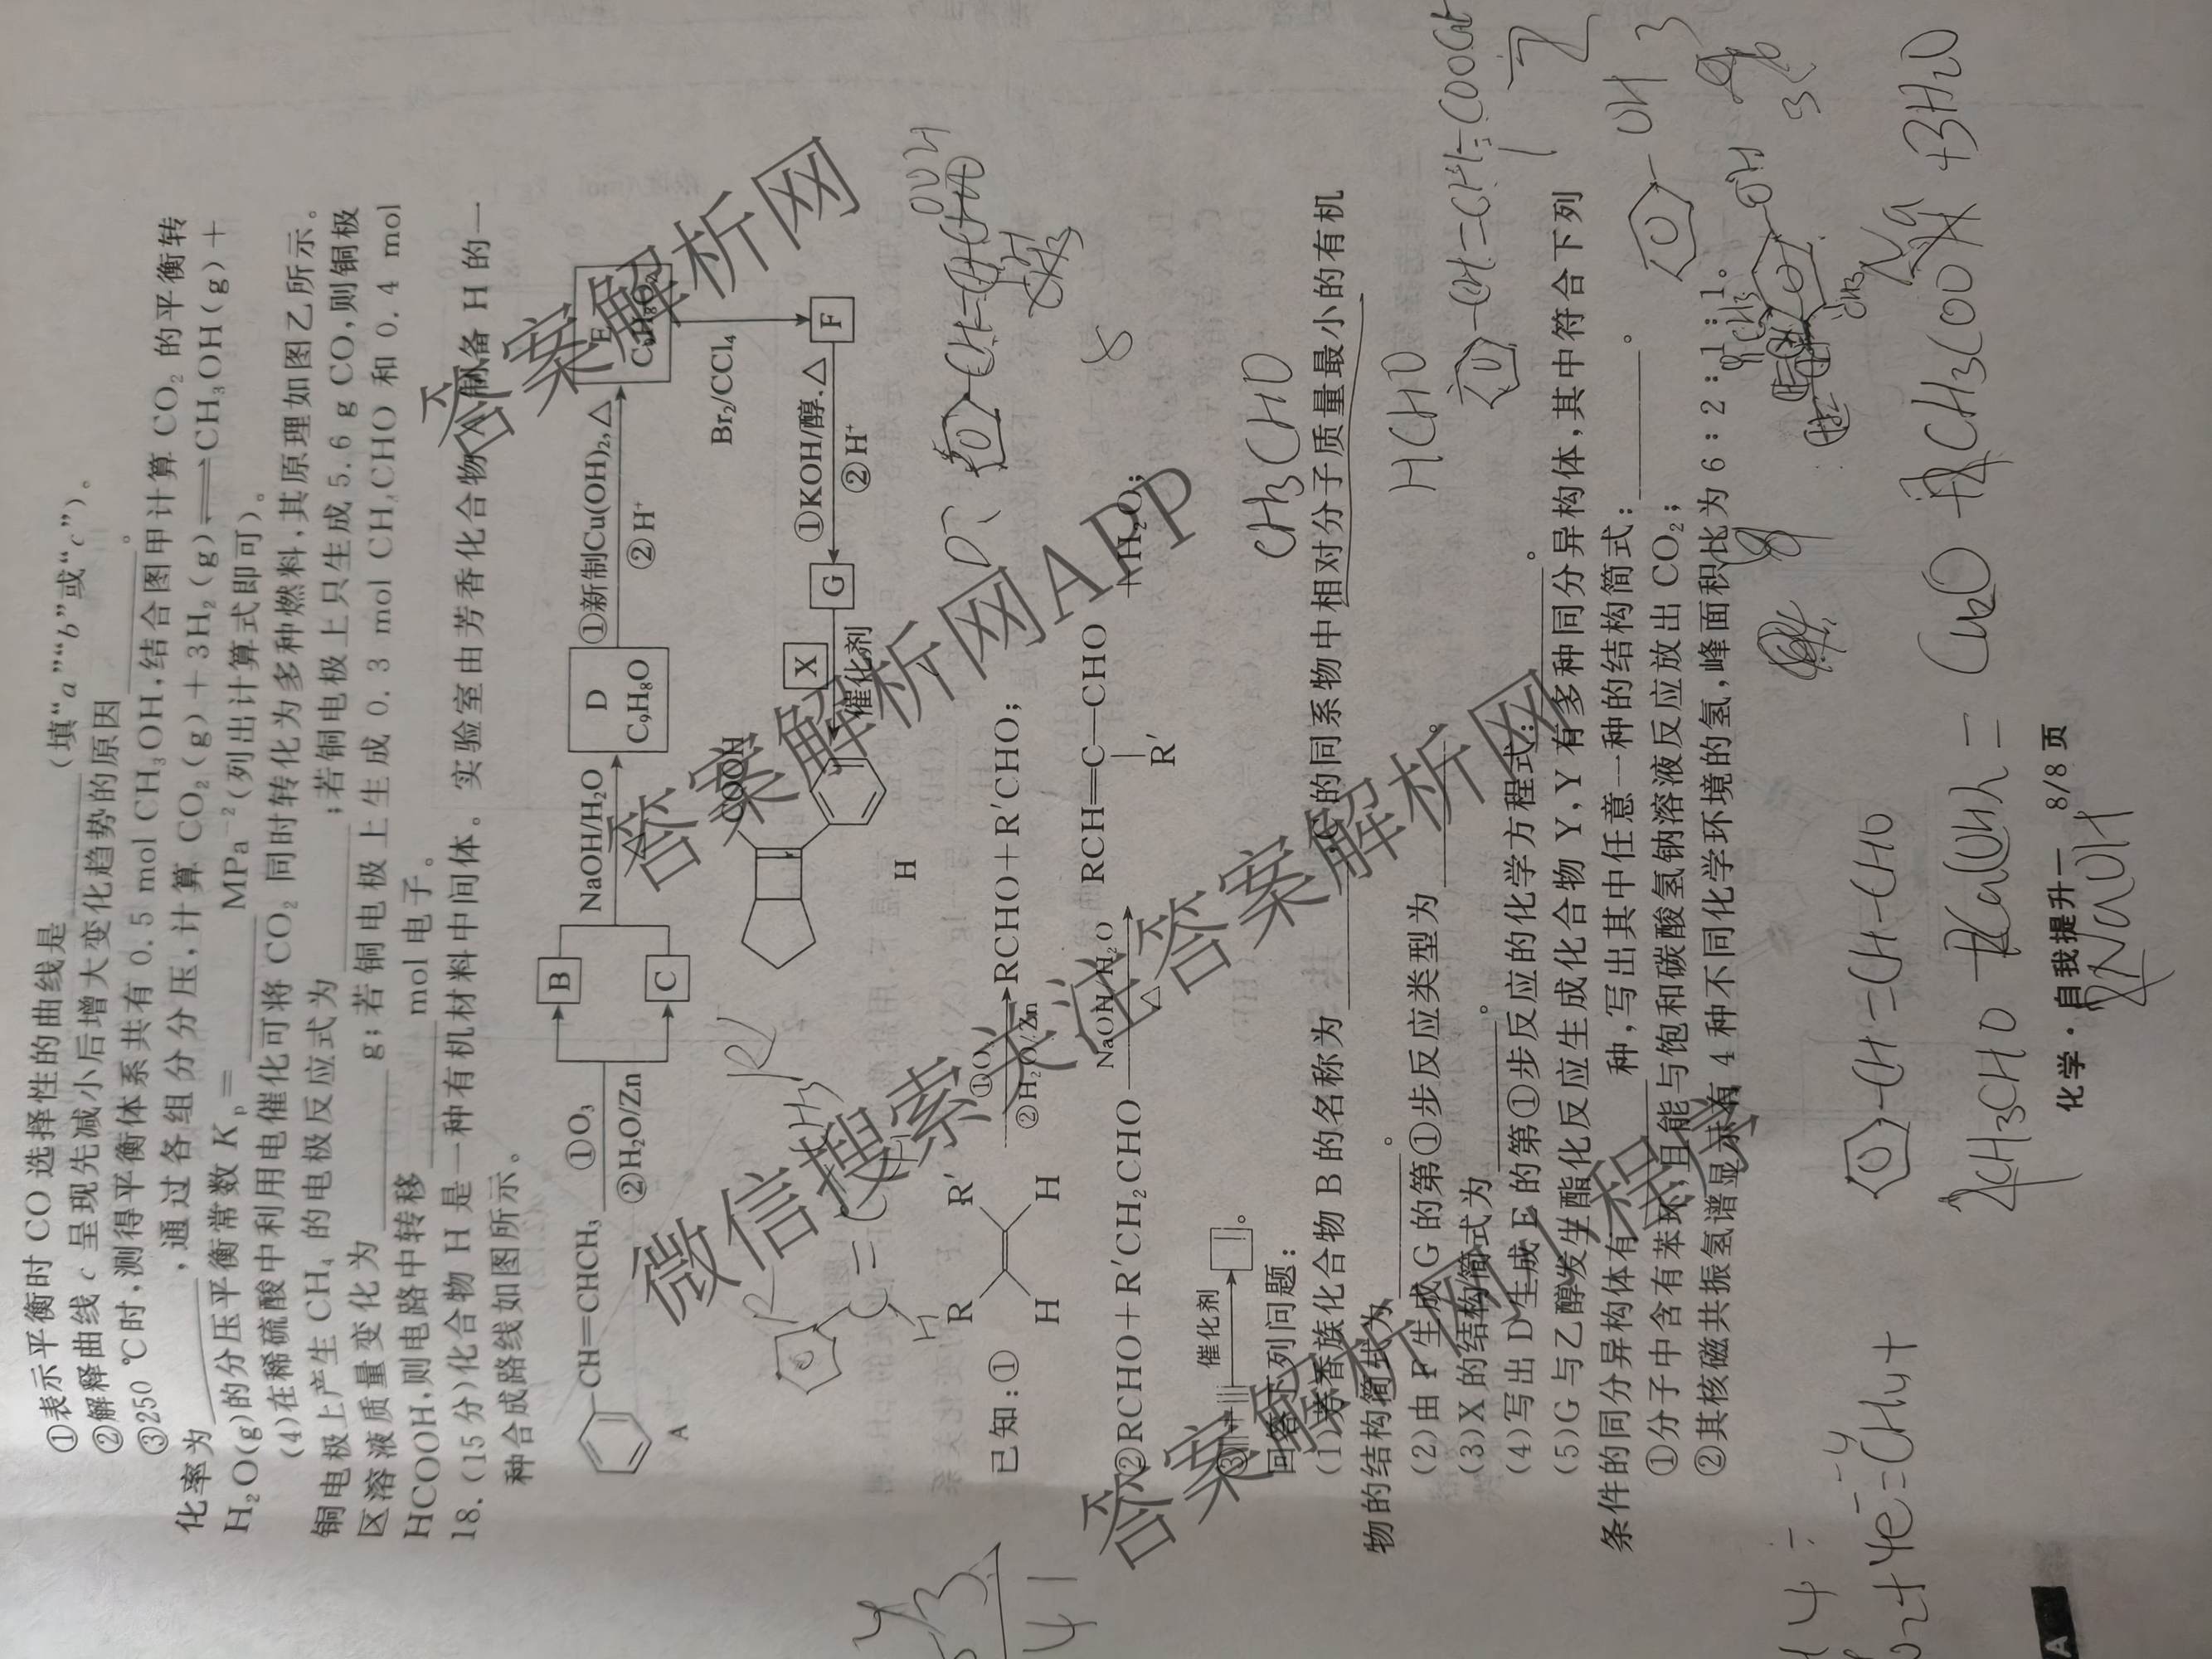 ①表示平衡时 CO 选择性的曲线是________(填“a”“b”或“c”)。
②解释曲线 c 呈现先减小后增大变化趋势的原因________。
③250 ℃时,测得平衡体系共有 0.5 mol CH₃OH,结合图甲计算 CO₂ 的平衡转
化率为________,通过各组分分压,计算 CO₂(g)+3H₂(g)⇌CH₃OH(g)+
H₂O(g)的分压平衡常数 Kₚ=________MPa⁻²(列出计算式即可)。
(4)在稀硫酸中利用电催化可将 CO₂ 同时转化为多种燃料,其原理如图乙所示。
铜电极上产生 CH₄ 的电极反应式为________;若铜电极上只生成 5.6 g CO,则铜极
区溶液质量变化为________g;若铜电极上生成 0.3 mol CH₃CHO 和 0.4 mol
HCOOH,则电路中转移________mol 电子。
18.(15 分)化合物 H 是一种有机材料中间体。实验室由芳香化合物 A 制备 H 的一
种合成路线如图所示。
CH=CHCH₃
A
①O₃
②H₂O/Zn
B
C
NaOH/H₂O
D
C₉H₈O
①新制Cu(OH)₂,△
②H⁺
E
C₉H₈O₂
Br₂/CCl₄
F
①KOH/醇,△
②H⁺
G
X
催化剂
COOH
H
已知:①
R R′
H H
①O₃
②H₂O/Zn
RCHO+R′CHO;
②RCHO+R′CH₂CHO
NaOH/H₂O
△
RCH=C—CHO
R′
+H₂O;
③
催化剂
。
回答下列问题:
(1)芳香族化合物 B 的名称为________,C 的同系物中相对分子质量最小的有机
物的结构简式为________。
(2)由 F 生成 G 的第①步反应类型为________。
(3)X 的结构简式为________。
(4)写出 D 生成 E 的第①步反应的化学方程式:________。
(5)G 与乙醇发生酯化反应生成化合物 Y,Y 有多种同分异构体,其中符合下列
条件的同分异构体有________种,写出其中任意一种的结构简式:________。
①分子中含有苯环,且能与饱和碳酸氢钠溶液反应放出 CO₂;
②其核磁共振氢谱显示有 4 种不同化学环境的氢,峰面积比为 6∶2∶1∶1。
化学·自我提升一 8/8 页
A
CH₃CHO
HCHO
答案解析网
答案解析网APP
答案解析网
微信搜索